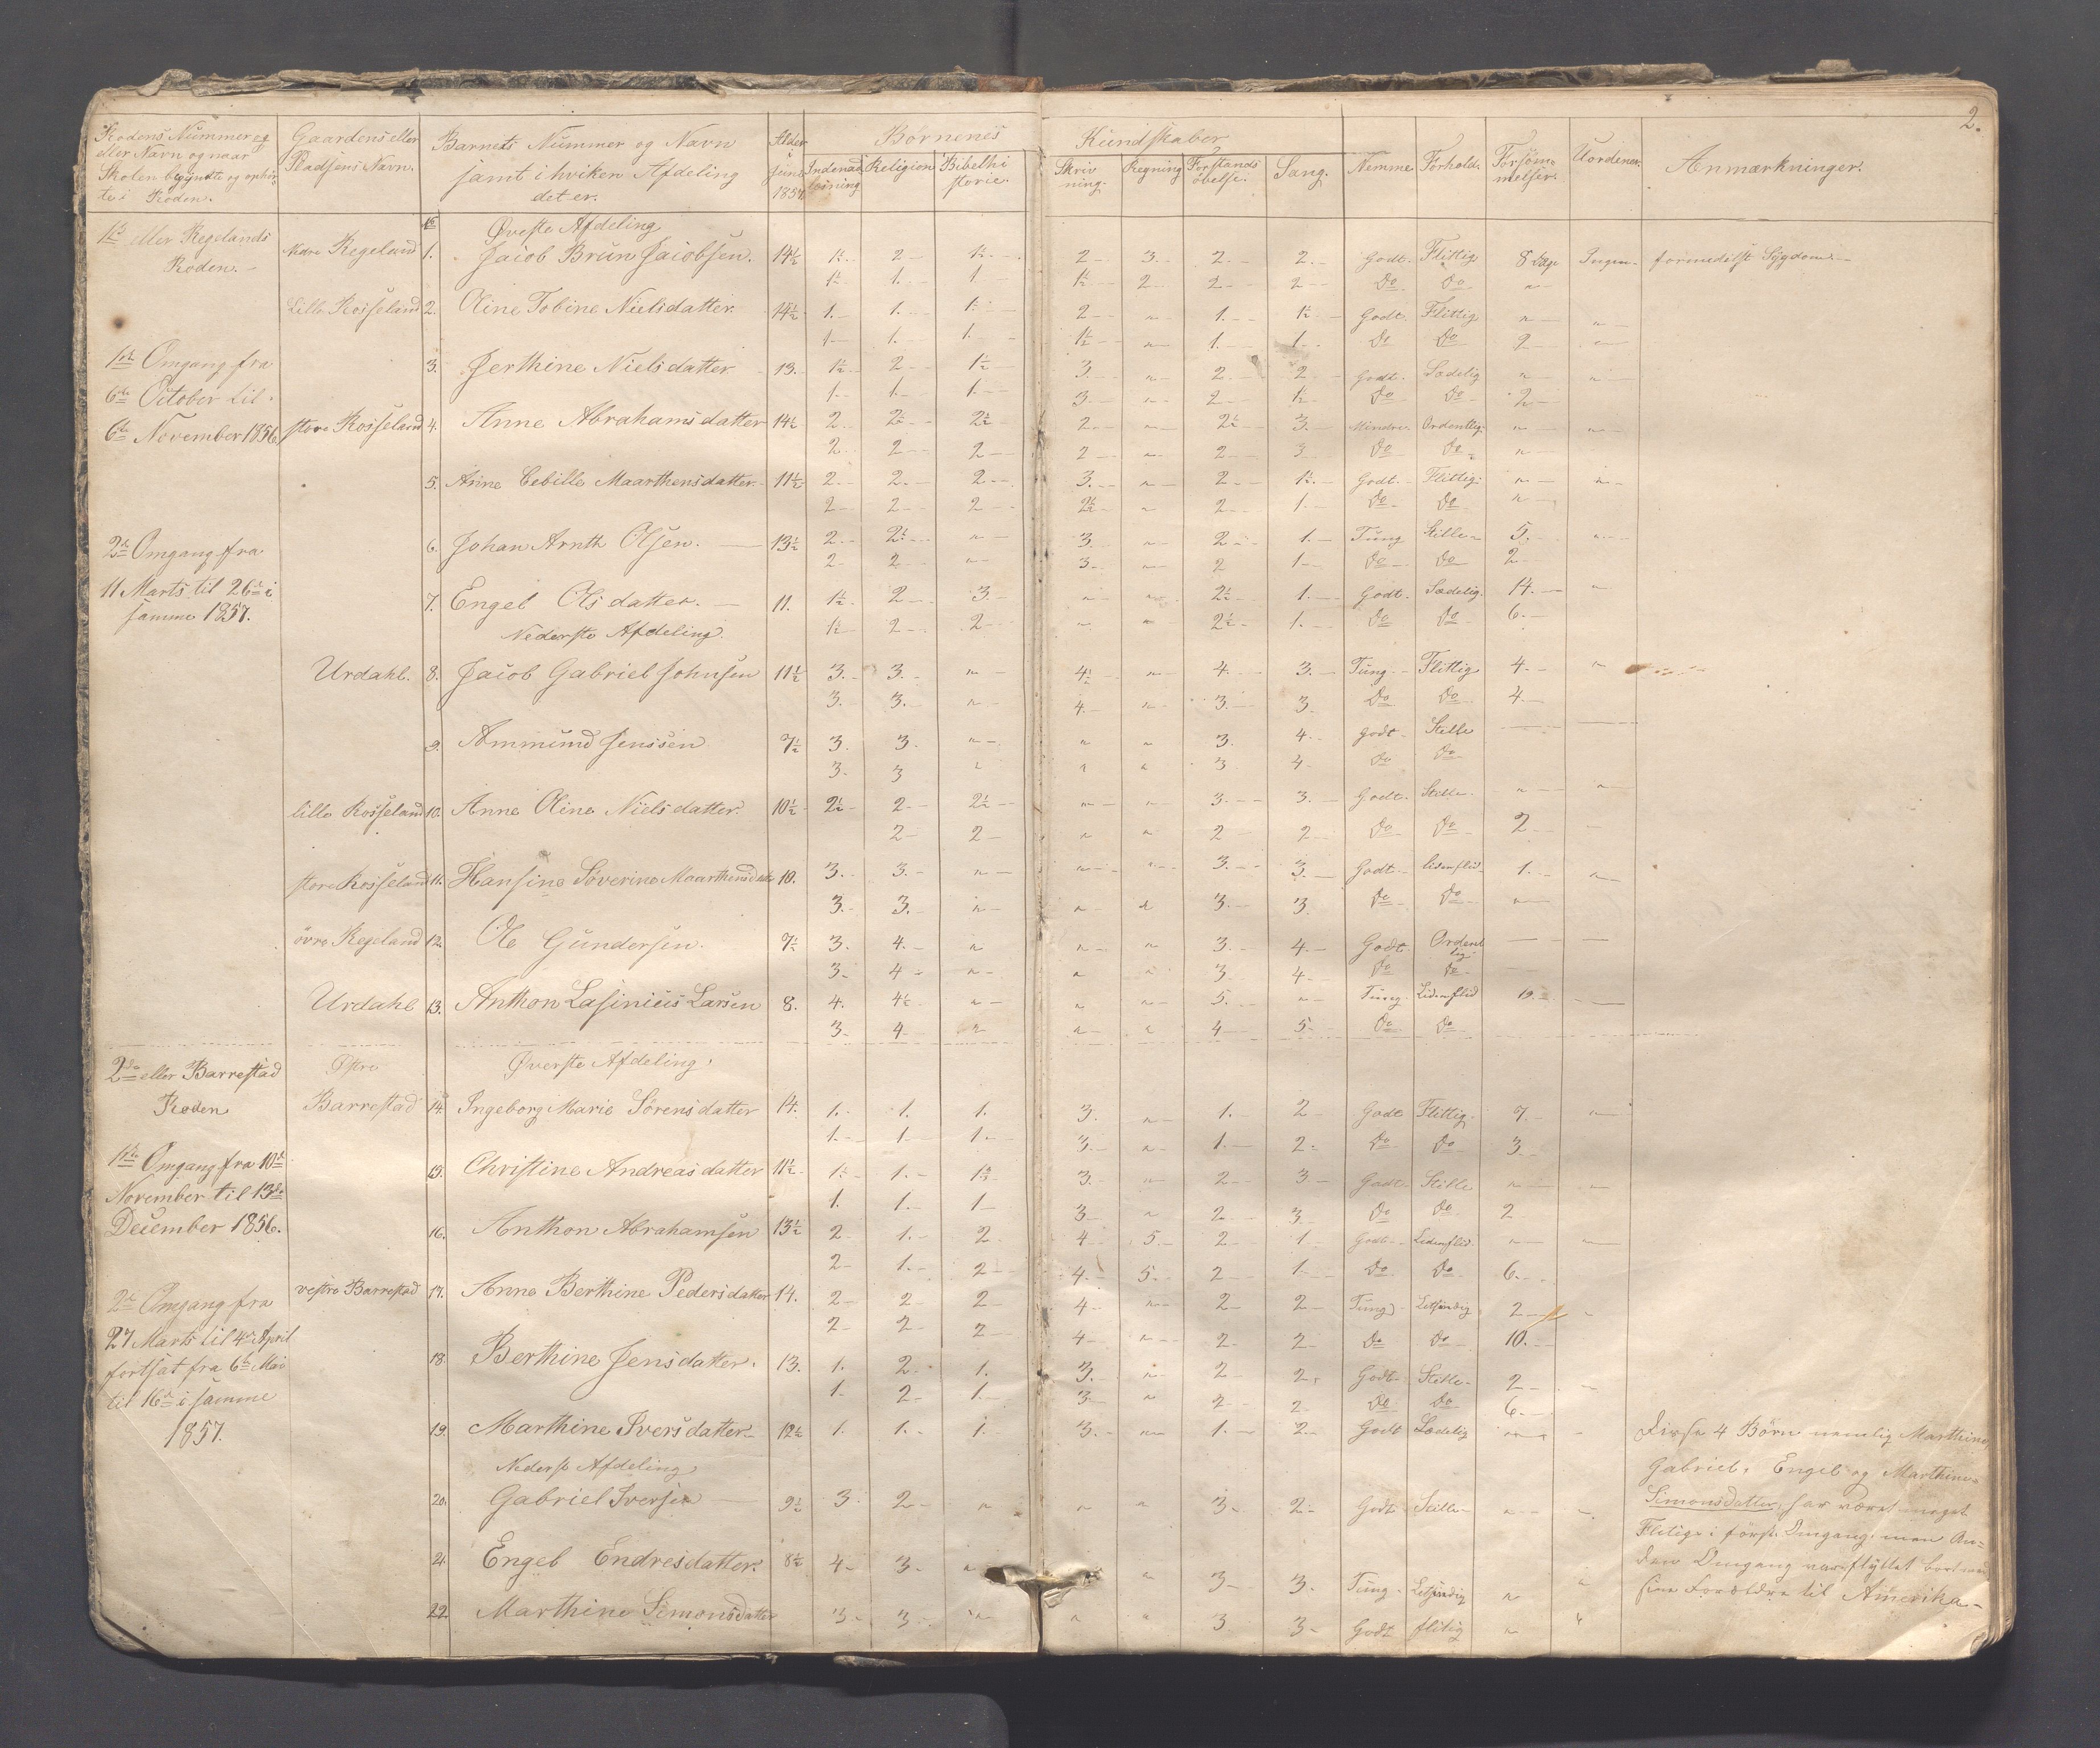 2.
Rodens Nummer og
eller Navn og naar
Skolen begyndte og ophør-
te i Roden.
Gaardens eller
Pladsens Navn.
Barnets Nummer og Navn
samt i hvilken Afdeling
det er.
Alder
i
Juni
1857
Børnenes Kundskaber
Indenad-
læsning
Religion
Bibelhi
storie.
Skriv
ning.
Regning
Forstands
øbelse.
Sang.
Nemme
Forhold.
Forsøm-
melser.
Uordener.
Anmærkninger.
1ste eller Regelands
Roden.
Øverste Afdeling
Nedre Regeland 1. Jacob Brun Jacobsen. 14½ 1½ 2 1½ 2 3 2 2 Godt. Flittig 8 Dage Ingen formedelst Sygdom
1½ 1 1 1½ 2 2 2 Do Do "
Lille Rosseland 2. Oline Tobine Nielsdatter 14½ 1. 1. 1½ 2 " 1. 1½ Godt. Flittig " "
1 1. 1. 1½ " 1 1 Do Do 2 "
1ste Omgang fra
6te October til
6te November 1856
3. Jerthine Nielsdatter 13. 1½ 2 1½ 3 " 2 2 Godt. Sædelig " "
1 1 1 3 " 2 1½ Do Do 2
store Rosseland 4. Anne Abrahamsdatter 14½ 2 2½ 2½ 2 " 2½ 3 Mindre Ordentlig " "
2 2 2 2 " 2 3 Do Do "
5. Anne Cebille Maarthensdatter 11½ 2 2 2 3 " 2 1½ Godt Flittig " "
2 2 2 2½ " 2 1 Do Do "
2den Omgang fra
11 Marts til 26de i
samme 1857.
6. Johan Arnth Olsen. 13½ 2 2½ " 3 " 2 1. Tung Stille 5 "
2 2 " 3 " 2 1 Do Do 2
7. Engel Olsdatter. 11. 1½ 2 3 " " 2½ 1. Godt. Sædelig. 14. "
1½ 2 2 " " 2½ 1. Do Do 6.
Nederste Afdeling.
Urdahl. 8. Jacob Gabriel Johnsen 11½ 3. 3. " 4½ " 4. 3. Tung Flittig 4. "
3. 3. " 4. " 3. 3. Do Do 4
9. Ammund Jenssen 7½ 3. 3. " " " 3. 4. godt Stille
3. 3 " " " 3 4 Do Do
lille Rosseland 10. Anne Oline Nielsdatter. 10½ 2½ 2 2½ " " 3 3. Godt. Stille. " "
2 2 " " 2 2 Do Do 2
store Rosseland 11. Hansine Söverine Maarthensdatter 10. 3. 3. " " " 3. 3. Godt liden flid 1. "
3. 3. " " " 3. 3 Do Do "
övre Regeland 12. Ole Gundersen. 7½ 3. 4. " " " 3. 4. Godt Ordent
lig.
3. 4 " " " 3 4 Do Do
Urdahl 13. Anthon Lasinius Larsen 8. 4. 4½ " " " 5. " Tung Liden flid 19.
3. 4 " " " 4 5 Do Do
2den eller Barrestad
Roden
Øverste Afdeling.
Østre
Barrestad 14. Ingeborg Marie Sörensdatter 14. 1. 1. 1. 3. " 1. 2 Godt Flittig. 7. "
1. 1 1. 3. " 1. 2. Do Do 3
1ste Omgang fra 10de
November til 13de
December 1856.
15. Christine Andreasdatter 11½ 1½ 1. 1½ 3. " 2 3 Godt Stille " "
1. 1. 1 3 " 2 3 Do Do 2
16. Anthon Abrahamsen 13½ 2 1. 2. 4 5. 2 1 Godt Liden flid. " "
2 1. 2 4. 5. 2 1 Do Do 6.
2den Omgang fra
27 Marts til 4de April
fortsat fra 6te Mai
til 16de i samme
1857.
vestre Barrestad 17. Anne Berthine Pedersdatter 14. 2 2 2 4 " 2 2 Tung Letsindig 2
2 2 2 4 " 2 2 Do Do 10.
18. Berthine Jensdatter. 13. 1. 2. 1. 3. " 2 2. Godt Stille. 2
1. 2 1. 3 " 2 2 Do Do 6.
19. Marthine Iversdatter 12½ 1. 1. 1. 3. " 1. 2 Godt Sædelig "
Nederste Afdeling
20. Gabriel Iversen 9½ 3. 2 " " " 3 2 Godt Stille "
21. Engel Endresdatter. 8½ 4 3. " " 3 3. Tung Letsindig " "
22. Marthine Simonsdatter 3. 3. " " " 3 3 Godt flitig " "
Disse 4 Börn nemlig Marthine,
Gabriel, Engel og Marthine
Simonsdatter, har været meget
Flitige i förste Omgang. men An-
den Omgang var flyttet bort med
sine Forældre til Amerika.